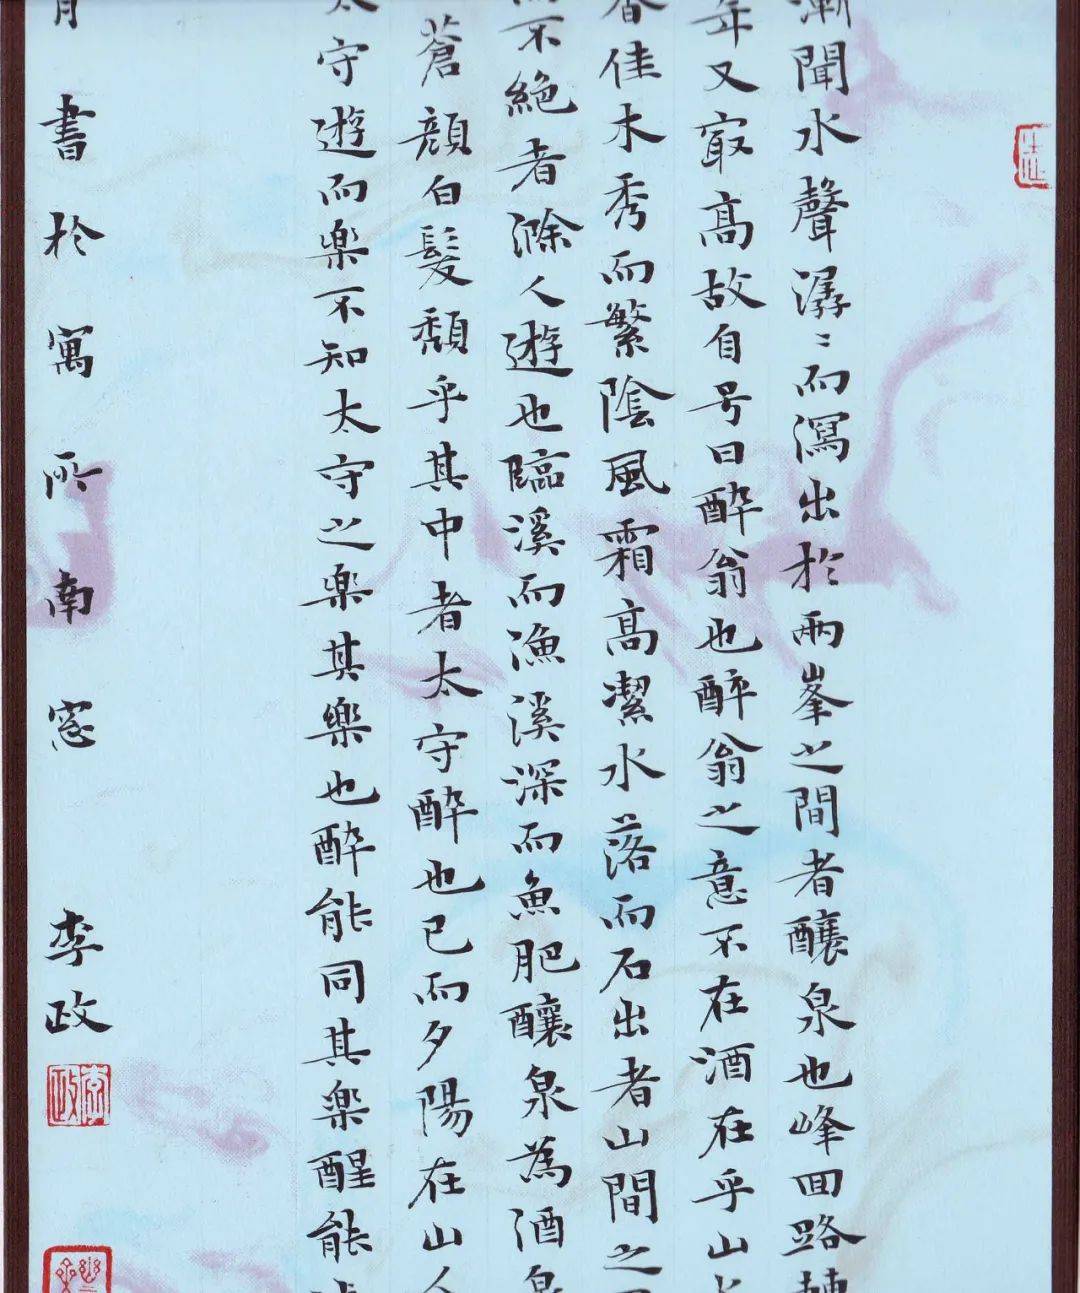 漸聞水聲潺〻而瀉出於兩峯之間者釀泉也峰回路轉
年又冣高故自号曰醉翁也醉翁之意不在酒在乎山
佳木秀而繁陰風霜高潔水落而石出者山間之
而不絶者滁人遊也臨溪而漁溪深而魚肥釀泉為酒泉
蒼顔白髮頹乎其中者太守醉也已而夕陽在山人
太守遊而樂不知太守之樂其樂也醉能同其樂醒能
月書於寓所南窓 李政
李政